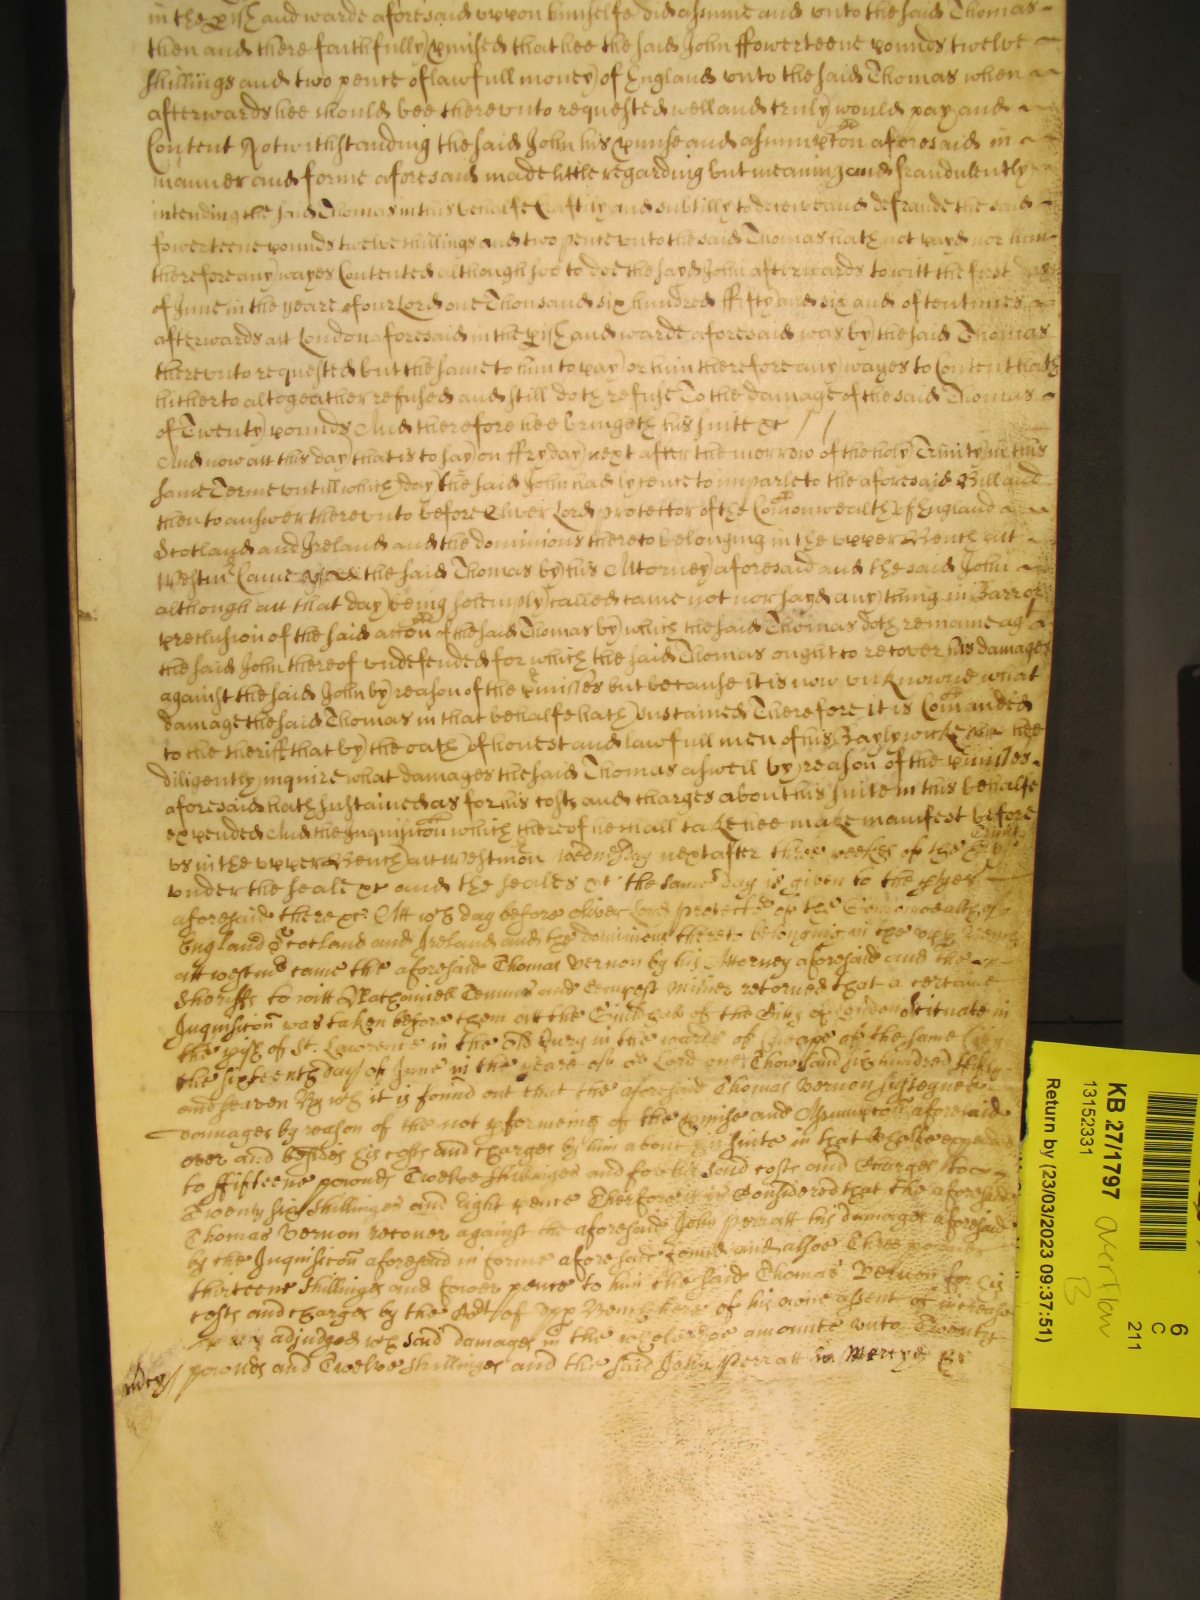 in the pish and warde aforesaid uppon himselfe did assume and unto the said Thomas
then and there faithfully pmised that hee the said John ffowerteene pounds twelve
shillings and two pence of lawfull money of England unto the said Thomas when
afterwards hee should bee thereunto requested well and truly would pay and
Content Notwithstanding the said John his pmise and assumpcon aforesaid in
manner and forme aforesaid made little regarding but meaning and fraudulently
intending the said Thomas in this behalfe Craftily and subtilly to deceive and defraude the said
fowerteene pounds twelve shillings and two pence unto the said Thomas hath not payd nor him
therefore any wayes Contented although soe to doe the sayd John afterwards to witt the first day
of June in the yeare of our Lord one Thousand six hundred ffifty and six and oftentimes
afterwards att London aforesaid in the pish and warde aforesaid was by the said Thomas
thereunto requested but the same to him to pay or him therefore any wayes to Content hath
hitherto altogeather refused and still doth refuse To the damage of the said Thomas
of Twenty pounds And therefore hee bringeth this suite &c
And now att this day that is to say on ffryday next after the morrow of the holy Trinity in this
same Terme untill which day the said John had lycence to imparle to the aforesaid Bill and
then to answer thereunto before Oliver Lord protector of the Comonwealth of England
Scotland and Ireland and the dominions thereto belonging in the upper Bench att
Westm Came the said Thomas by his Attorney aforesaid and the said John
although att that day being solemply called came not nor sayd any thing in Barr or
preclusion of the said accon of the said Thomas by which the said Thomas doth remaine ag
the said John thereof undefended for which the said Thomas ought to recover his damages
against the said John by reason of the pmisses but because it is now unknowne what
damage the said Thomas in that behalfe hath sustained Therefore it is Comanded
to the sheriff that by the oath of honest and lawfull men of his Baylywicke hee
diligently inquire what damages the said Thomas aswell by reason of the pmisses
aforesaid hath sustained as for his costs and charges about his suite in this behalfe
expended And the Inquisicon which thereof he shall take hee make manifest before
us in the upper Bench att westmon Wednesday next after three weekes of the holy Trinity
under the seale &c and the seales &c the same day is given to the ptyes
aforesaid there &c Att wch day before Oliver Lord protector of the Comonwealth of
England Scotland and Ireland and the dominions thereto belonging in the upp Bench
att westm came the aforesaid Thomas Vernon by his Attorney aforesaid and the
Sheriffs to witt Nathaniell Temms and Tempest Milner retorned that a certaine
Inquisicon was taken before them att the Guildhall of the Citty of London Scituate in
the pish of St. Lawrence in the Old Jury in the warde of Cheape of the same Citty
the sixteenth day of June in the yeare of or Lord one Thousand six hundred fifty
and seaven By wch it is found out that the aforesaid Thomas Vernon susteyned
dammages by reason of the not pforming of the pmise and Assumpcon aforesaid
over and besides his costs and charges by him about his suite in that behalfe expended
to ffifteene pounds Twelve shillinges and for his said costs and charges to
Twenty six shillinges and Eight pence Therfore it is Considered that the aforesaid
Thomas Vernon recover against the aforesaid John Perratt his damages aforesaid
by the Inquisicon aforesaid in forme aforesaid found and alsoe Three pounds
thirteene shillinges and fower pence to him the said Thomas Vernon for his
costs and charges by the Cort of upp Bench here of his owne assent of increase
adjudged wch said damages in the whole doe amounte unto Twenty
pounds and Twelve shillinges and the said John Perratt in Mercye &c
mercy
KB 27/1797
13152331
Return by (23/03/2023 09:37:51)
overflow
B
6
C
211